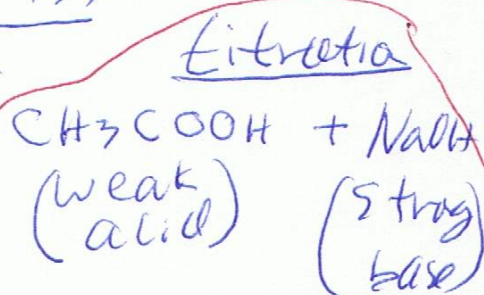 titratia
CH3COOH + NaOH
(weak acid) (strog base)